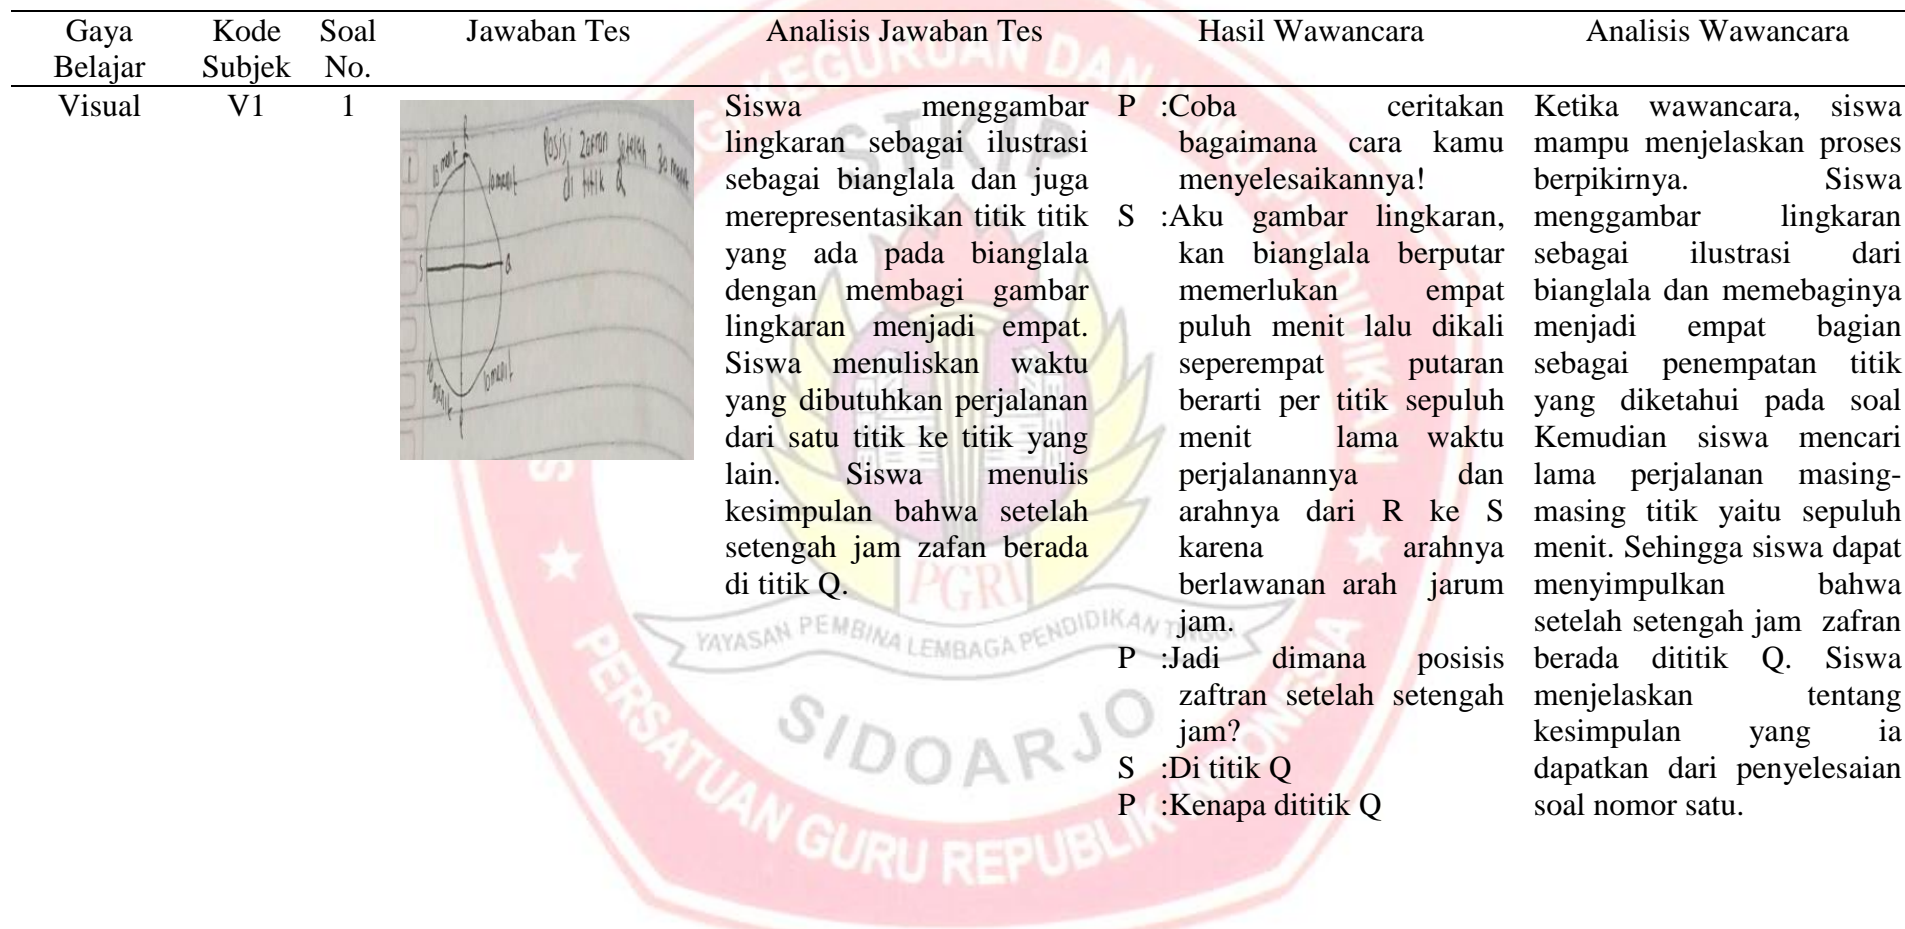 Gaya Belajar
Kode Subjek
Soal No.
Jawaban Tes
Analisis Jawaban Tes
Hasil Wawancara
Analisis Wawancara
Visual
V1
1
R
Posisi Zafran setelah 30 menit
di titik Q
10 menit
10 menit
S
Q
10 menit
10 menit
Siswa menggambar
lingkaran sebagai ilustrasi
sebagai bianglala dan juga
merepresentasikan titik titik
yang ada pada bianglala
dengan membagi gambar
lingkaran menjadi empat.
Siswa menuliskan waktu
yang dibutuhkan perjalanan
dari satu titik ke titik yang
lain. Siswa menulis
kesimpulan bahwa setelah
setengah jam zafan berada
di titik Q.
P :Coba ceritakan
bagaimana cara kamu
menyelesaikannya!
S :Aku gambar lingkaran,
kan bianglala berputar
memerlukan empat
puluh menit lalu dikali
seperempat putaran
berarti per titik sepuluh
menit lama waktu
perjalanannya dan
arahnya dari R ke S
karena arahnya
berlawanan arah jarum
jam.
P :Jadi dimana posisis
zaftran setelah setengah
jam?
S :Di titik Q
P :Kenapa dititik Q
Ketika wawancara, siswa
mampu menjelaskan proses
berpikirnya. Siswa
menggambar lingkaran
sebagai ilustrasi dari
bianglala dan memebaginya
menjadi empat bagian
sebagai penempatan titik
yang diketahui pada soal
Kemudian siswa mencari
lama perjalanan masing-
masing titik yaitu sepuluh
menit. Sehingga siswa dapat
menyimpulkan bahwa
setelah setengah jam zafran
berada dititik Q. Siswa
menjelaskan tentang
kesimpulan yang ia
dapatkan dari penyelesaian
soal nomor satu.
STKIP
PGRI
YAYASAN PEMBINA LEMBAGA PENDIDIKAN TINGGI
SIDOARJO
PERSATUAN GURU REPUBLIK INDONESIA